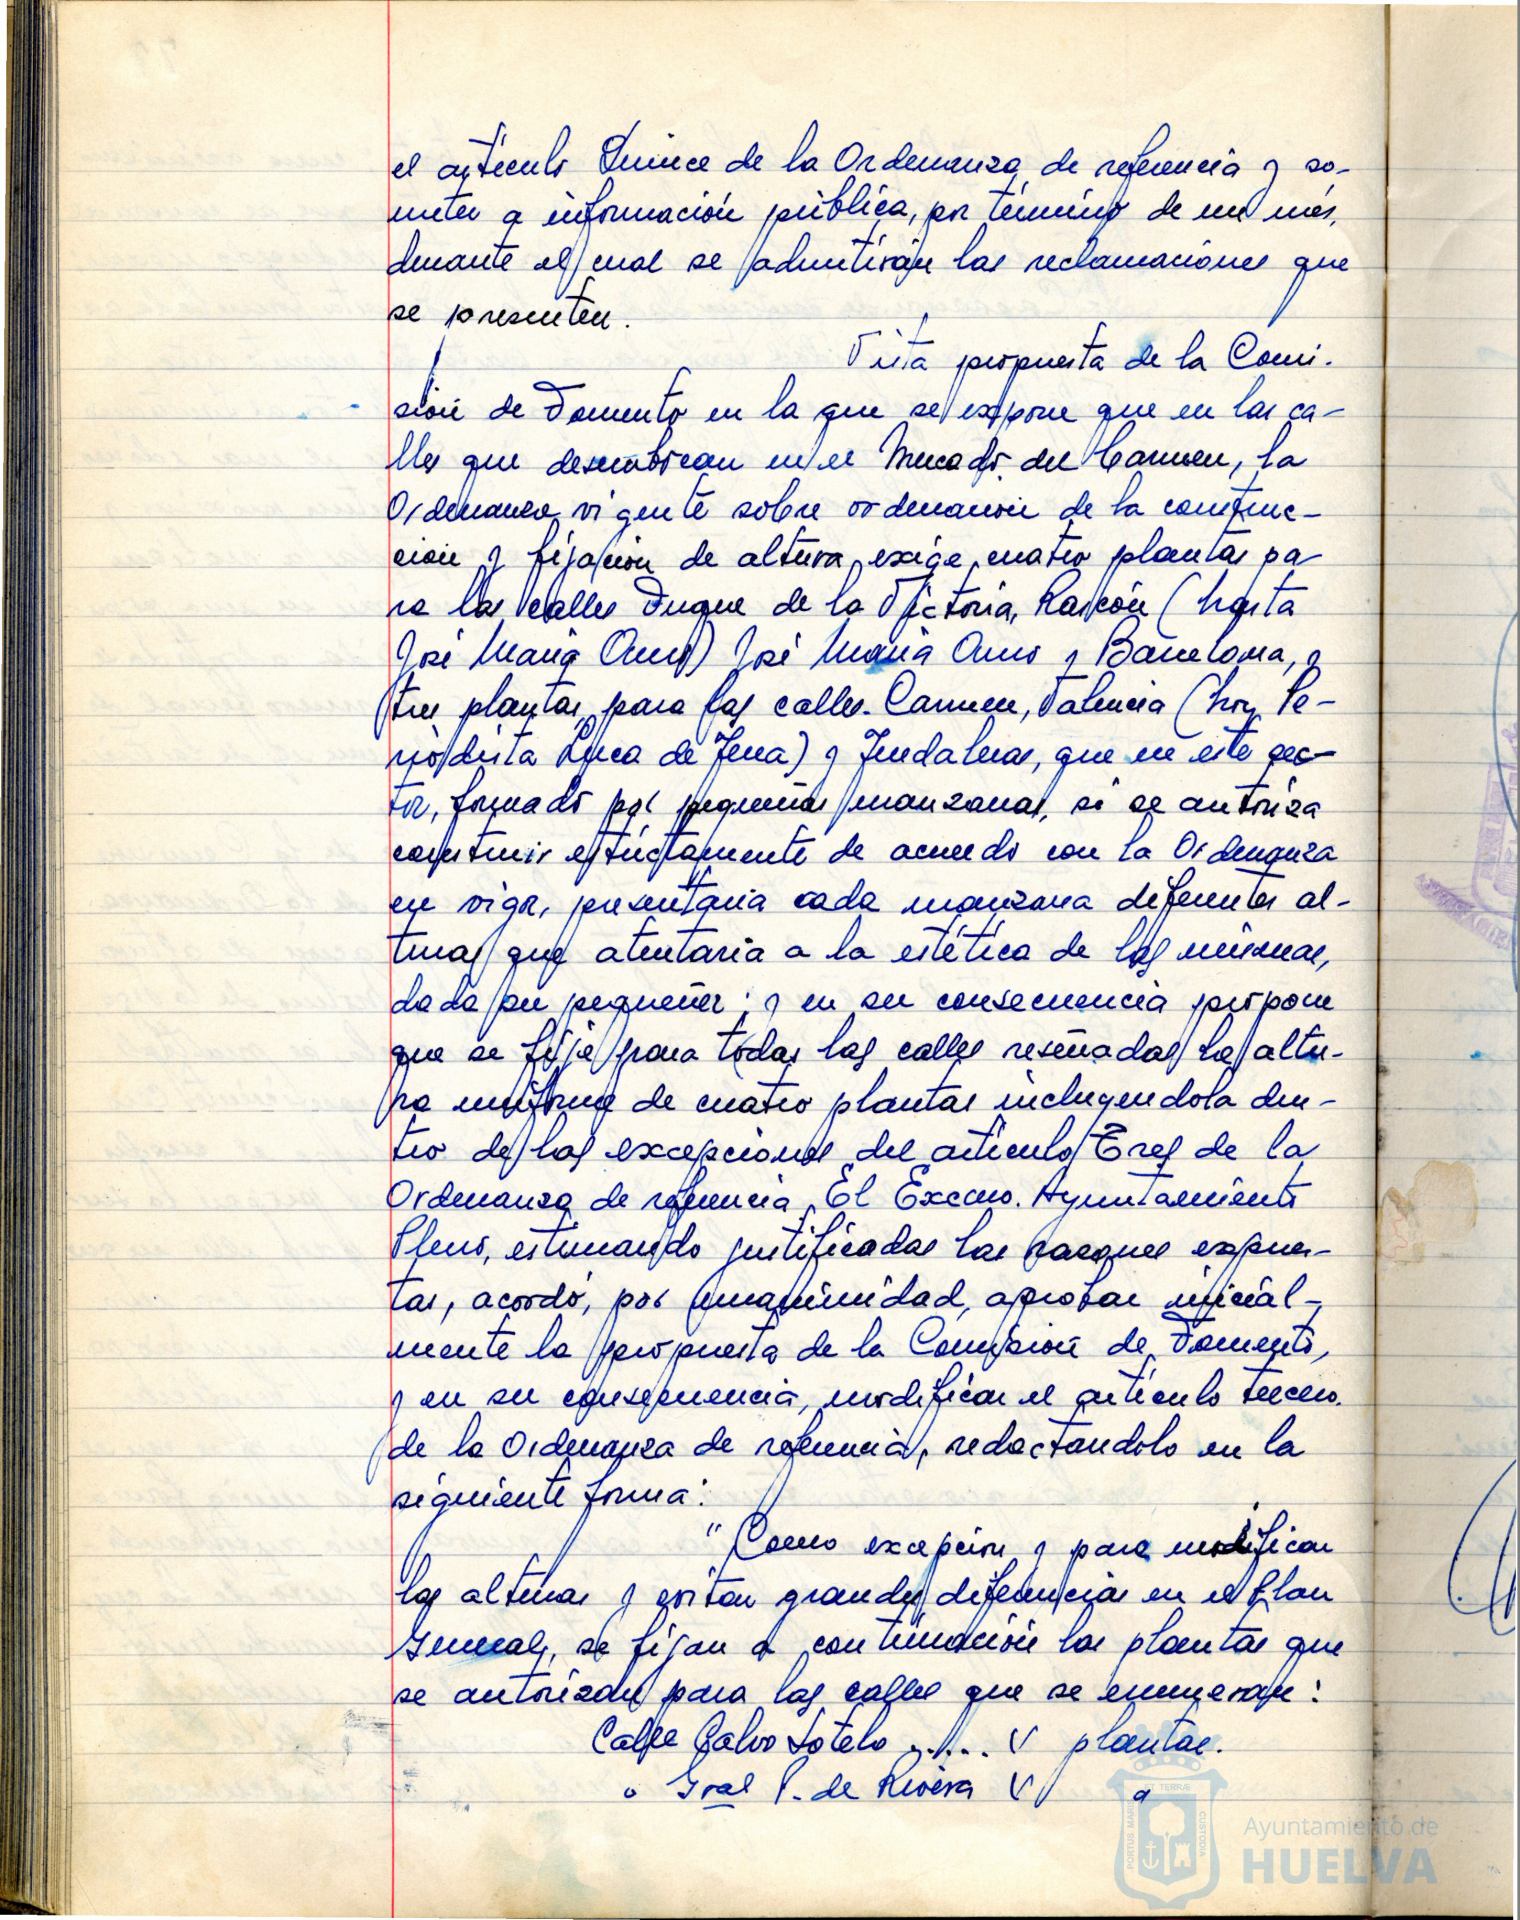 el artículo Quince de la Ordenanza de referencia y so-
meter a información pública, por término de un mes,
durante el cual se admitirán las reclamaciones que
se presenten.
Vista propuesta de la Comi-
sión de Fomento en la que se expone que en las ca-
lles que desembocan en el Mercado del Carmen, la
Ordenanza vigente sobre ordenacion de la construc-
ción y fijación de altura, exige cuatro plantas pa-
ra las calles Duque de la Victoria, Rascón (hasta
José María Amo) José María Amo y Barcelona, y
tres plantas para las calles Carmen, Valencia (hoy Pe-
riodista Luca de Tena) y Jendaleras, que en este sec-
tor, formado por pequeñas manzanas, si se autoriza
construir estrictamente de acuerdo con la Ordenanza
en vigor, presentaria cada manzana diferentes al-
turas que atentaria a la estética de las mismas,
dada su pequeñez; y en su consecuencia propone
que se fije para todas las calles reseñadas la altu-
ra uniforme de cuatro plantas incluyendola den-
tro de las excepciones del artículo Tres de la
Ordenanza de referencia. El Excmo. Ayuntamiento
Pleno, estimando justificadas las razones expues-
tas, acordó, por unanimidad, aprobar inicial-
mente la propuesta de la Comisión de Fomento,
y en su consecuencia, modificar el artículo tercero
de la Ordenanza de referencia, redactandolo en la
siguiente forma:
"Como excepción y para modificar
las alturas y evitar grandes diferencias en el Plan
General, se fijan a continuación las plantas que
se autorizan para las calles que se enumeran:
Calle Calvo Sotelo ..... V plantas.
" Gral P. de Rivera V "
PORTUS MARIS ET TERRÆ CUSTODIA
Ayuntamiento de
HUELVA